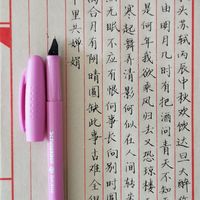 头苏轼丙辰中秋欢饮达旦大醉
由明月几时有把酒问青天不知
是何年我欲乘风归去又恐琼楼
寒起舞弄清影何似在人间转
无眠不应有恨何事长向别时圆
合月有阴晴圆缺此事古难全
千里共婵娟